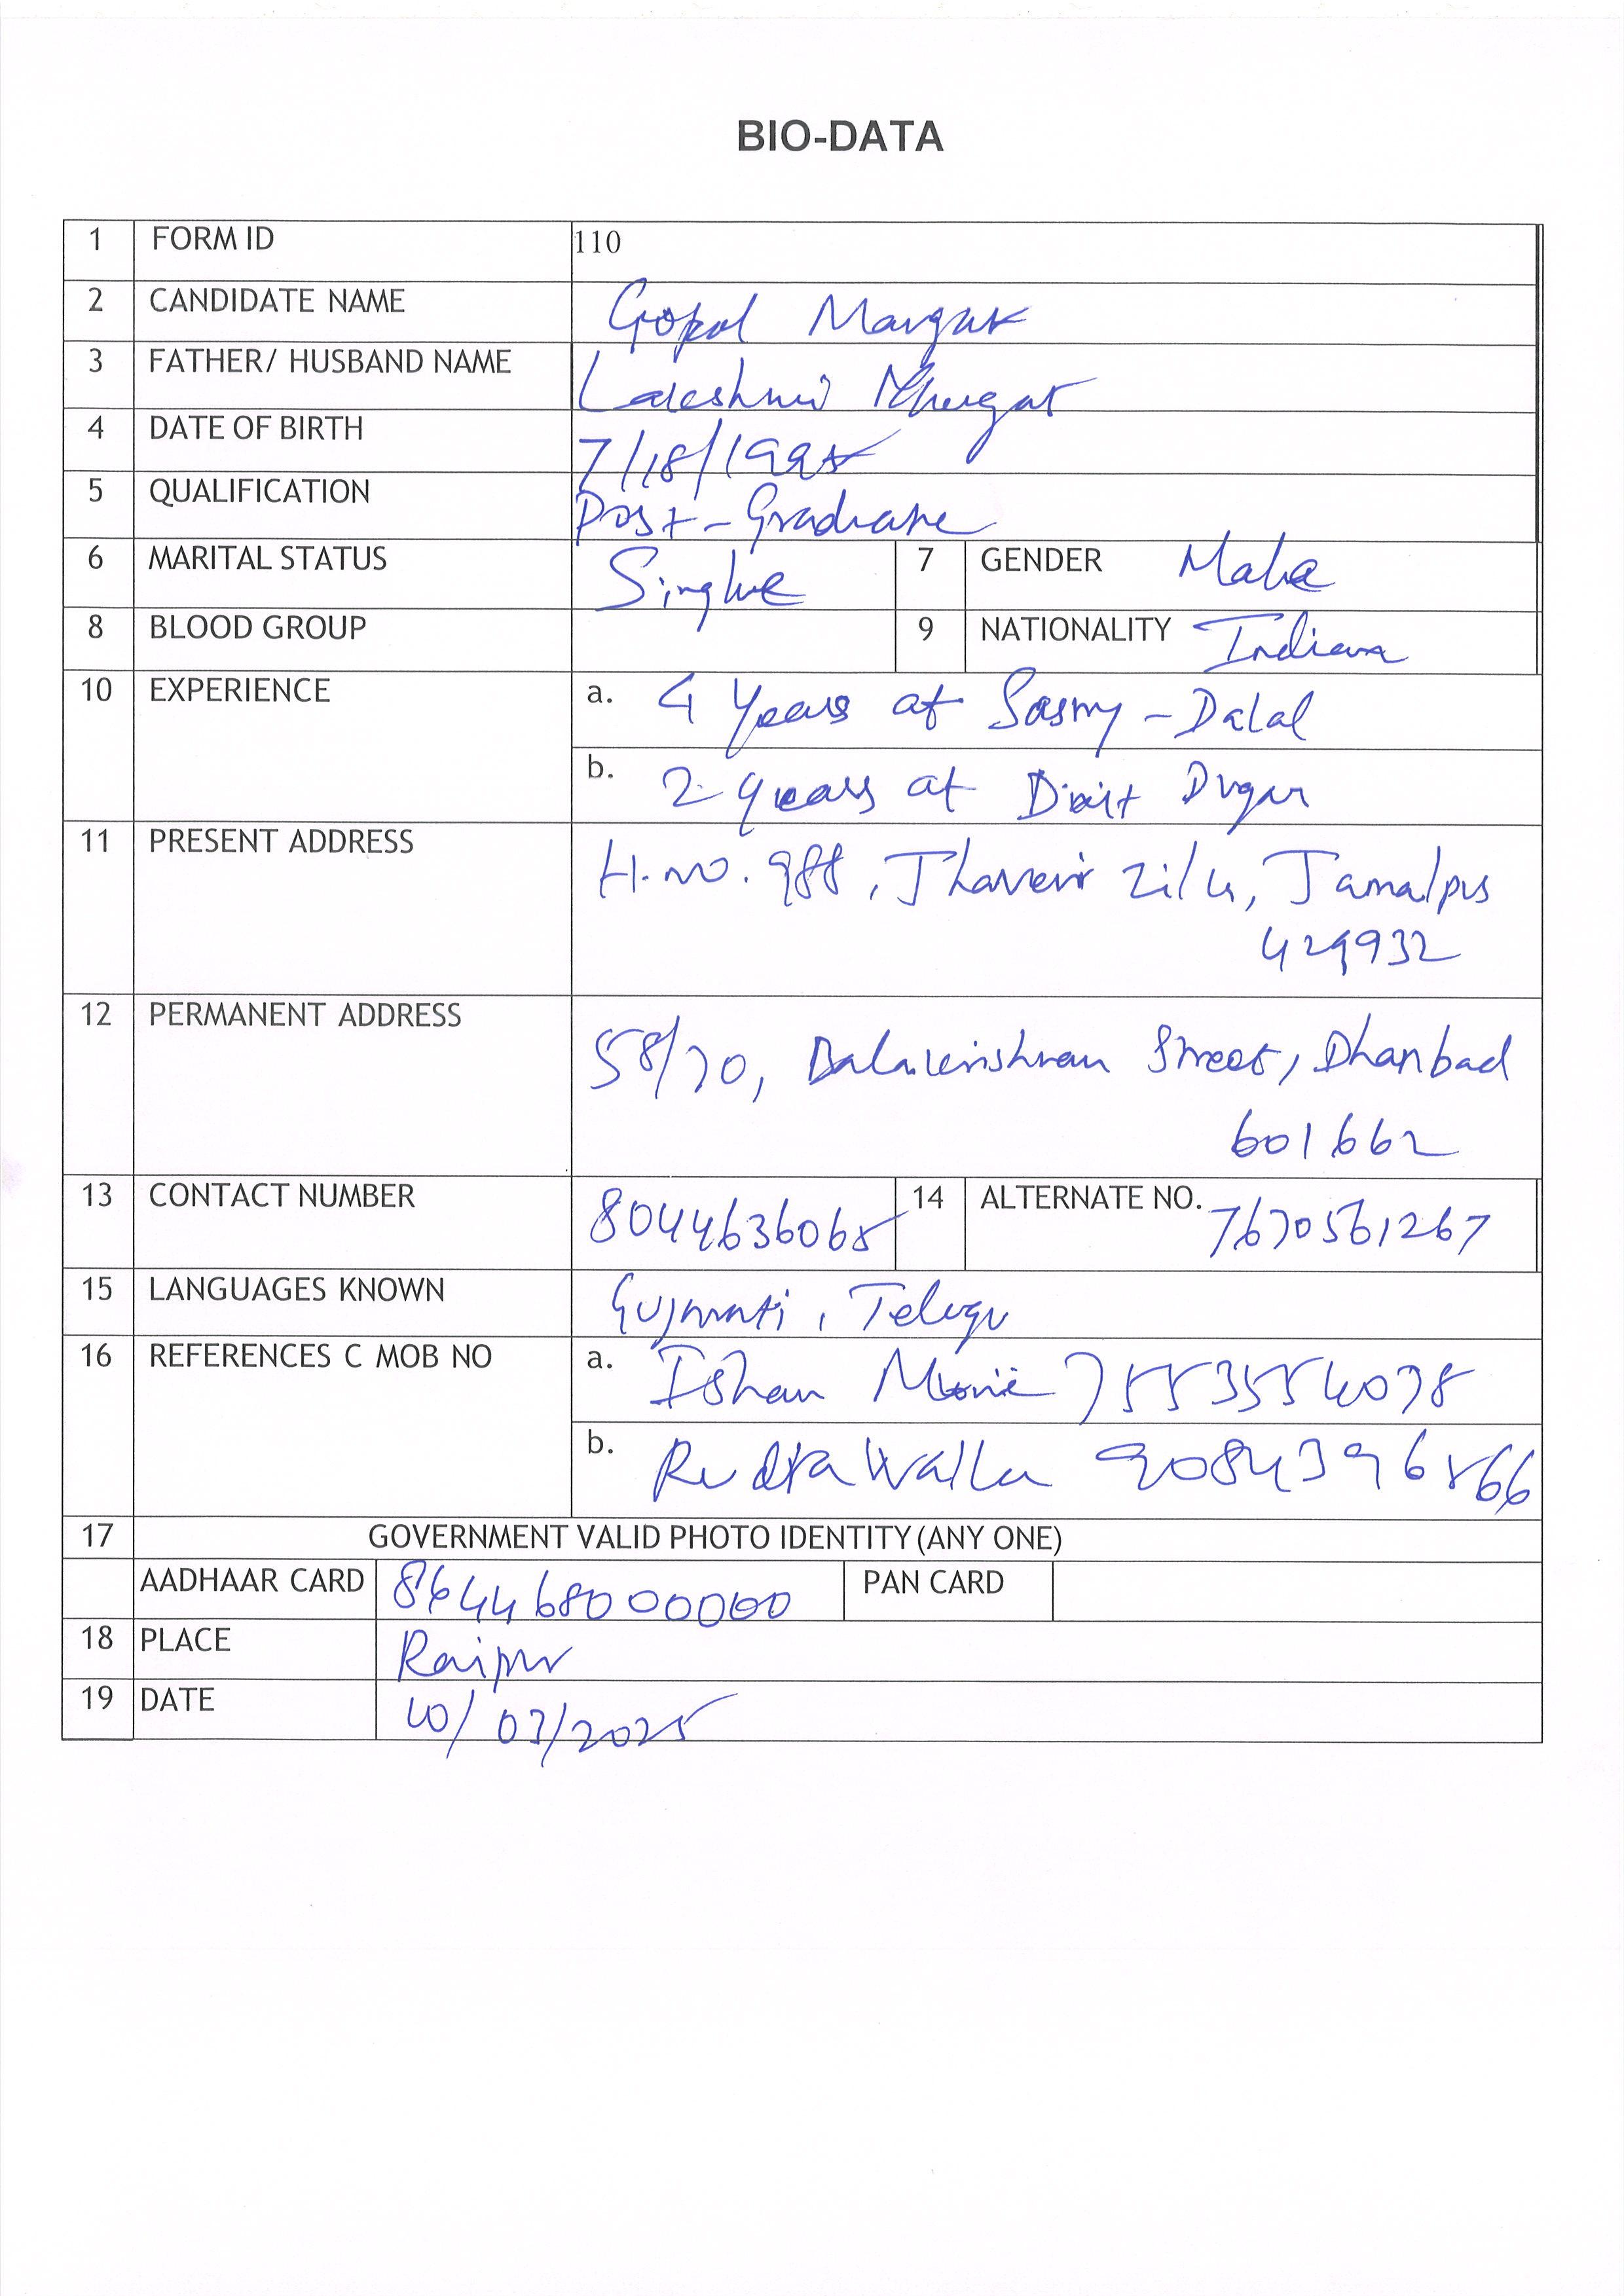 BIO-DATA
1 FORM ID 110
2 CANDIDATE NAME Gopal Mangat
3 FATHER/ HUSBAND NAME Lakshmi
4 DATE OF BIRTH 7/18/1995
5 QUALIFICATION Post-Graduate
6 MARITAL STATUS Single 7 GENDER Male
8 BLOOD GROUP 9 NATIONALITY Indian
10 EXPERIENCE a. 4 Years at Sastry-Dalal
b. 2 years at Dixit Dugar
11 PRESENT ADDRESS H.no. 988, Jhaveri Zila, Jamalpur
429932
12 PERMANENT ADDRESS 58/70, Balakrishnan Street, Dhanbad
601662
13 CONTACT NUMBER 8044636065 14 ALTERNATE NO. 7670561267
15 LANGUAGES KNOWN Gujrati, Telugu
16 REFERENCES C MOB NO a. Ishan 7553554078
b. Rudra Walla 9084396566
17 GOVERNMENT VALID PHOTO IDENTITY (ANY ONE)
AADHAAR CARD 864468000000 PAN CARD
18 PLACE Raipur
19 DATE 10/03/2025